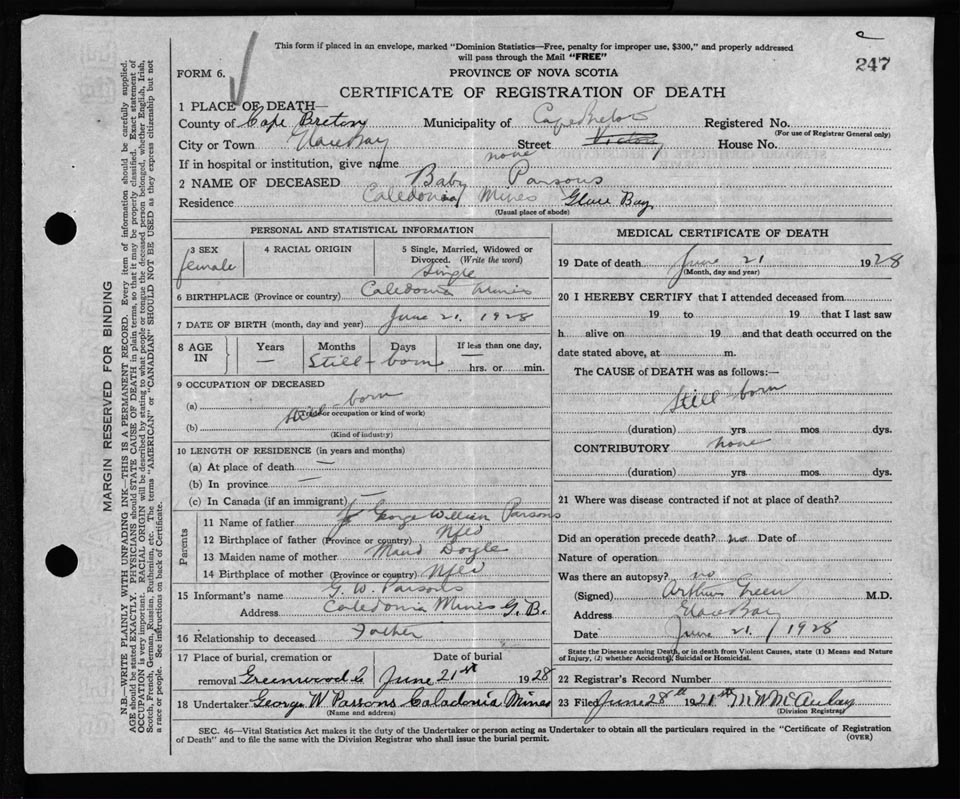 This form if placed in an envelope, marked "Dominion Statistics—Free, penalty for improper use, $300," and properly addressed
will pass through the Mail "FREE"
247
FORM 6.
PROVINCE OF NOVA SCOTIA
CERTIFICATE OF REGISTRATION OF DEATH
1 PLACE OF DEATH—
County of Cape Breton Municipality of Cape Breton Registered No.
(For use of Registrar General only)
City or Town Glace Bay Street Victory House No.
If in hospital or institution, give name none
2 NAME OF DECEASED Baby Parsons
Residence Caledonia Mines Glace Bay
(Usual place of abode)
PERSONAL AND STATISTICAL INFORMATION
3 SEX 4 RACIAL ORIGIN 5 Single, Married, Widowed or
Divorced. (Write the word)
female Single
6 BIRTHPLACE (Province or country) Caledonia Mines
7 DATE OF BIRTH (month, day and year) June 21. 1928
8 AGE IN Years Months Days If less than one day,
— Still-born — hrs. or min.
9 OCCUPATION OF DECEASED
(a) Still-born
(Trade or occupation or kind of work)
(b)
(Kind of industry)
10 LENGTH OF RESIDENCE (in years and months)
(a) At place of death —
(b) In province —
(c) In Canada (if an immigrant) —
Parents
11 Name of father George William Parsons
12 Birthplace of father (Province or country) Nfld
13 Maiden name of mother Maud Doyle
14 Birthplace of mother (Province or country) Nfld
15 Informant's name G. W. Parsons
Address Caledonia Mines G. B.
16 Relationship to deceased Father
17 Place of burial, cremation or Date of burial
removal Greenwood C June 21st 1928
18 Undertaker George W Parsons Caladonia Mines
(Name and address)
MEDICAL CERTIFICATE OF DEATH
19 Date of death June 21 1928
(Month, day and year)
20 I HEREBY CERTIFY that I attended deceased from
19 to 19 that I last saw
h alive on 19 and that death occurred on the
date stated above, at m.
The CAUSE of DEATH was as follows:—
Still born
(duration) yrs mos dys.
CONTRIBUTORY none
(duration) yrs mos dys.
21 Where was disease contracted if not at place of death?
Did an operation precede death? no Date of
Nature of operation
Was there an autopsy? no
(Signed) Arthur Green M.D.
Address Glace Bay
Date June 21. 1928
State the Disease causing Death, or in death from Violent Causes, state (1) Means and Nature
of Injury, (2) whether Accidental, Suicidal or Homicidal.
22 Registrar's Record Number
23 Filed June 28th 1921st M W McAulay
(Division Registrar)
SEC. 46—Vital Statistics Act makes it the duty of the Undertaker or person acting as Undertaker to obtain all the particulars required in the "Certificate of Registration
of Death" and to file the same with the Division Registrar who shall issue the burial permit.
(OVER)
MARGIN RESERVED FOR BINDING
N.B.—WRITE PLAINLY WITH UNFADING INK—THIS IS A PERMANENT RECORD. Every item of information should be carefully supplied.
AGE should be stated EXACTLY. PHYSICIANS should STATE CAUSE OF DEATH in plain terms, so that it may be properly classified. Exact statement of
OCCUPATION is very important. RACIAL ORIGIN will be described by stating to what people or tongue the deceased person belonged, whether English, Irish,
Scotch, French, German, Russian, Ruthenian, etc. The terms "AMERICAN" or "CANADIAN" SHOULD NOT BE USED as they express citizenship but not
a race or people. See instructions on back of Certificate.